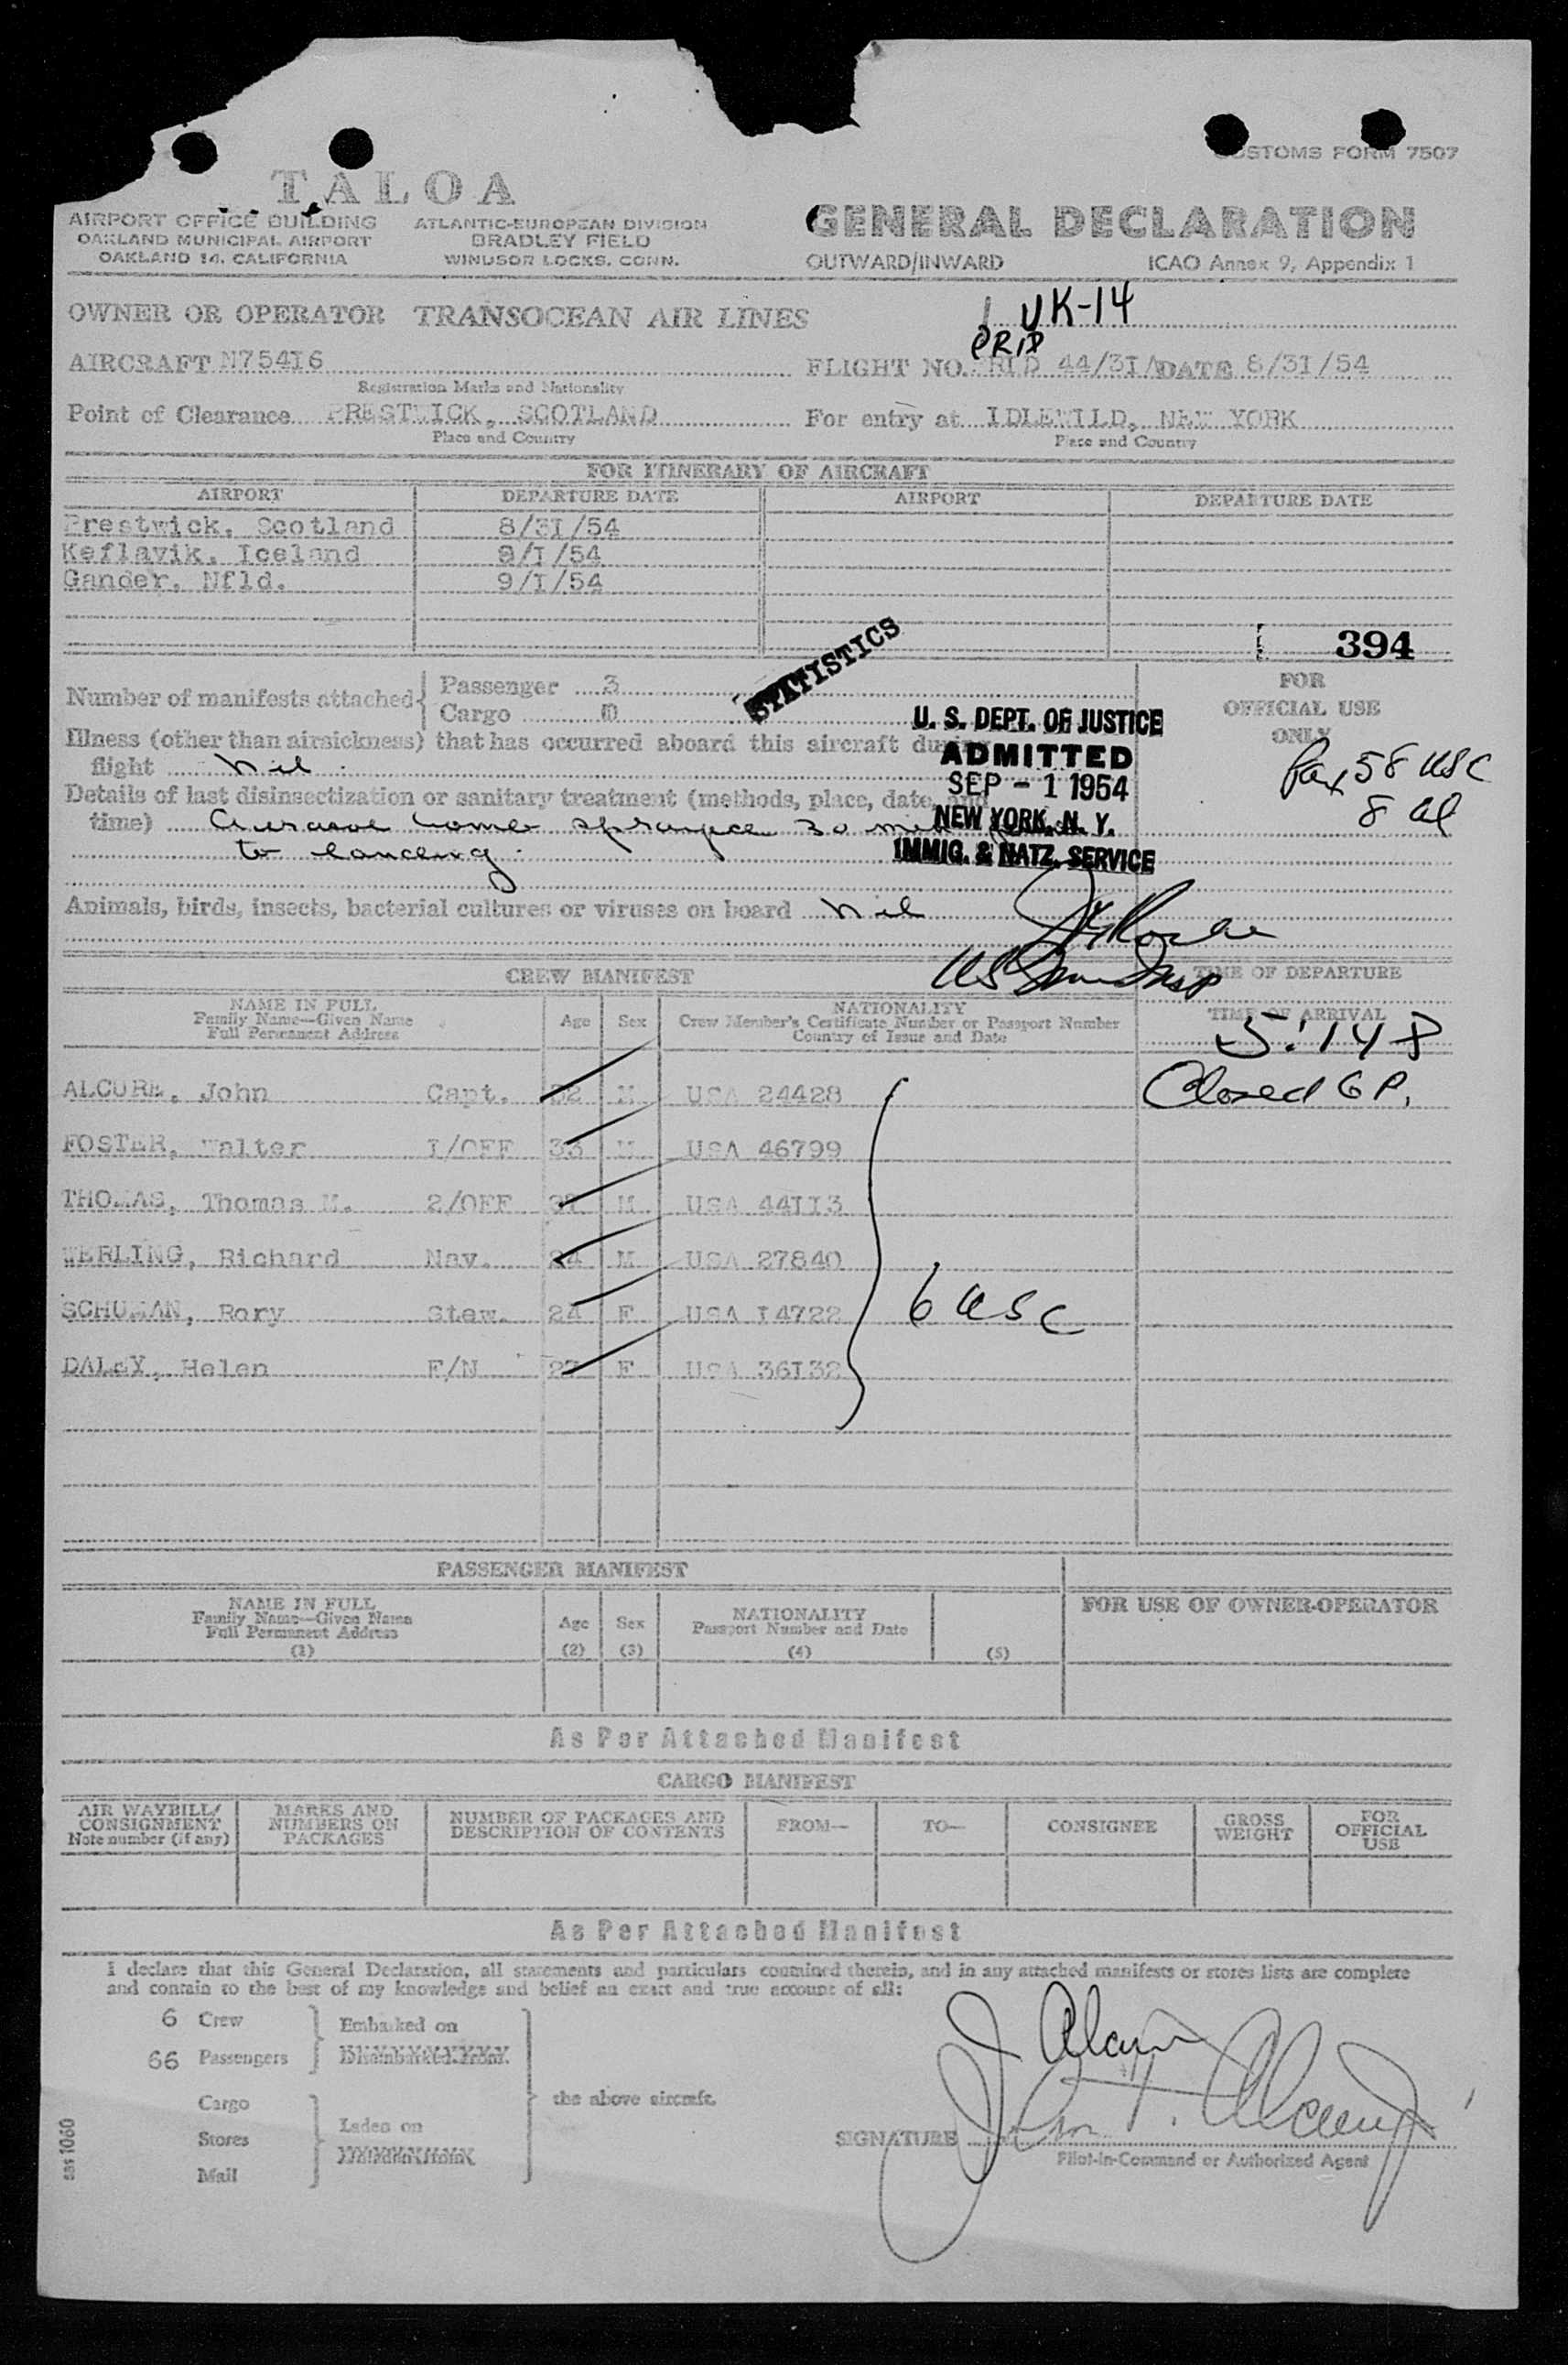 CUSTOMS FORM 7507
TALOA
AIRPORT OFFICE BUILDING
OAKLAND MUNICIPAL AIRPORT
OAKLAND 14, CALIFORNIA
ATLANTIC-EUROPEAN DIVISION
BRADLEY FIELD
WINDSOR LOCKS, CONN.
GENERAL DECLARATION
OUTWARD/INWARD ICAO Annex 9, Appendix 1
OWNER OR OPERATOR TRANSOCEAN AIR LINES
UK-14
AIRCRAFT N75416
Registration Marks and Nationality
FLIGHT NO. 44/3I/ DATE 8/3I/54
Point of Clearance PRESTWICK, SCOTLAND
Place and Country
For entry at IDLEWILD, NEW YORK
Place and Country
FOR ITINERARY OF AIRCRAFT
AIRPORT DEPARTURE DATE AIRPORT DEPARTURE DATE
Prestwick, Scotland 8/3I/54
Keflavik, Iceland 9/I/54
Gander, Nfld. 9/I/54
394
STATISTICS
Number of manifests attached
Passenger 3
Cargo 0
FOR
OFFICIAL USE
ONLY
Pax 58 USC
8 al
U. S. DEPT. OF JUSTICE
ADMITTED
SEP - 1 1954
NEW YORK, N. Y.
IMMIG. & NATZ. SERVICE
Illness (other than airsickness) that has occurred aboard this aircraft during
flight Nil
Details of last disinsectization or sanitary treatment (methods, place, date, and
time) Aerosol bomb sprayed 30 min
to landing.
Animals, birds, insects, bacterial cultures or viruses on board Nil
US Immig Insp
CREW MANIFEST
TIME OF DEPARTURE
NAME IN FULL
Family Name—Given Name
Full Permanent Address
Age Sex
NATIONALITY
Crew Member's Certificate Number or Passport Number
Country of Issue and Date
TIME OF ARRIVAL
5:14 P
Closed 6 P.
ALCORN, John Capt. 32 M USA 24428
FOSTER, Walter I/OFF 33 M USA 46799
THOMAS, Thomas M. 2/OFF M USA 44II3
WERLING, Richard Nav. 24 M USA 27840
SCHUMAN, Rory Stew. 24 F USA I4722
DALEY, Helen F/N 27 F USA 36I32
6 USC
PASSENGER MANIFEST
NAME IN FULL
Family Name—Given Name
Full Permanent Address
(1)
Age
(2)
Sex
(3)
NATIONALITY
Passport Number and Date
(4)
(5)
FOR USE OF OWNER-OPERATOR
As Per Attached Manifest
CARGO MANIFEST
AIR WAYBILL/
CONSIGNMENT
Note number (if any)
MARKS AND
NUMBERS ON
PACKAGES
NUMBER OF PACKAGES AND
DESCRIPTION OF CONTENTS
FROM—
TO—
CONSIGNEE
GROSS
WEIGHT
FOR
OFFICIAL
USE
As Per Attached Manifest
I declare that this General Declaration, all statements and particulars contained therein, and in any attached manifests or stores lists are complete
and contain to the best of my knowledge and belief an exact and true account of all:
6 Crew
66 Passengers
Embarked on
Disembarked from
Cargo
Stores
Mail
Laden on
Unladen from
the above aircraft.
SIGNATURE
Pilot-in-Command or Authorized Agent
sas 1060